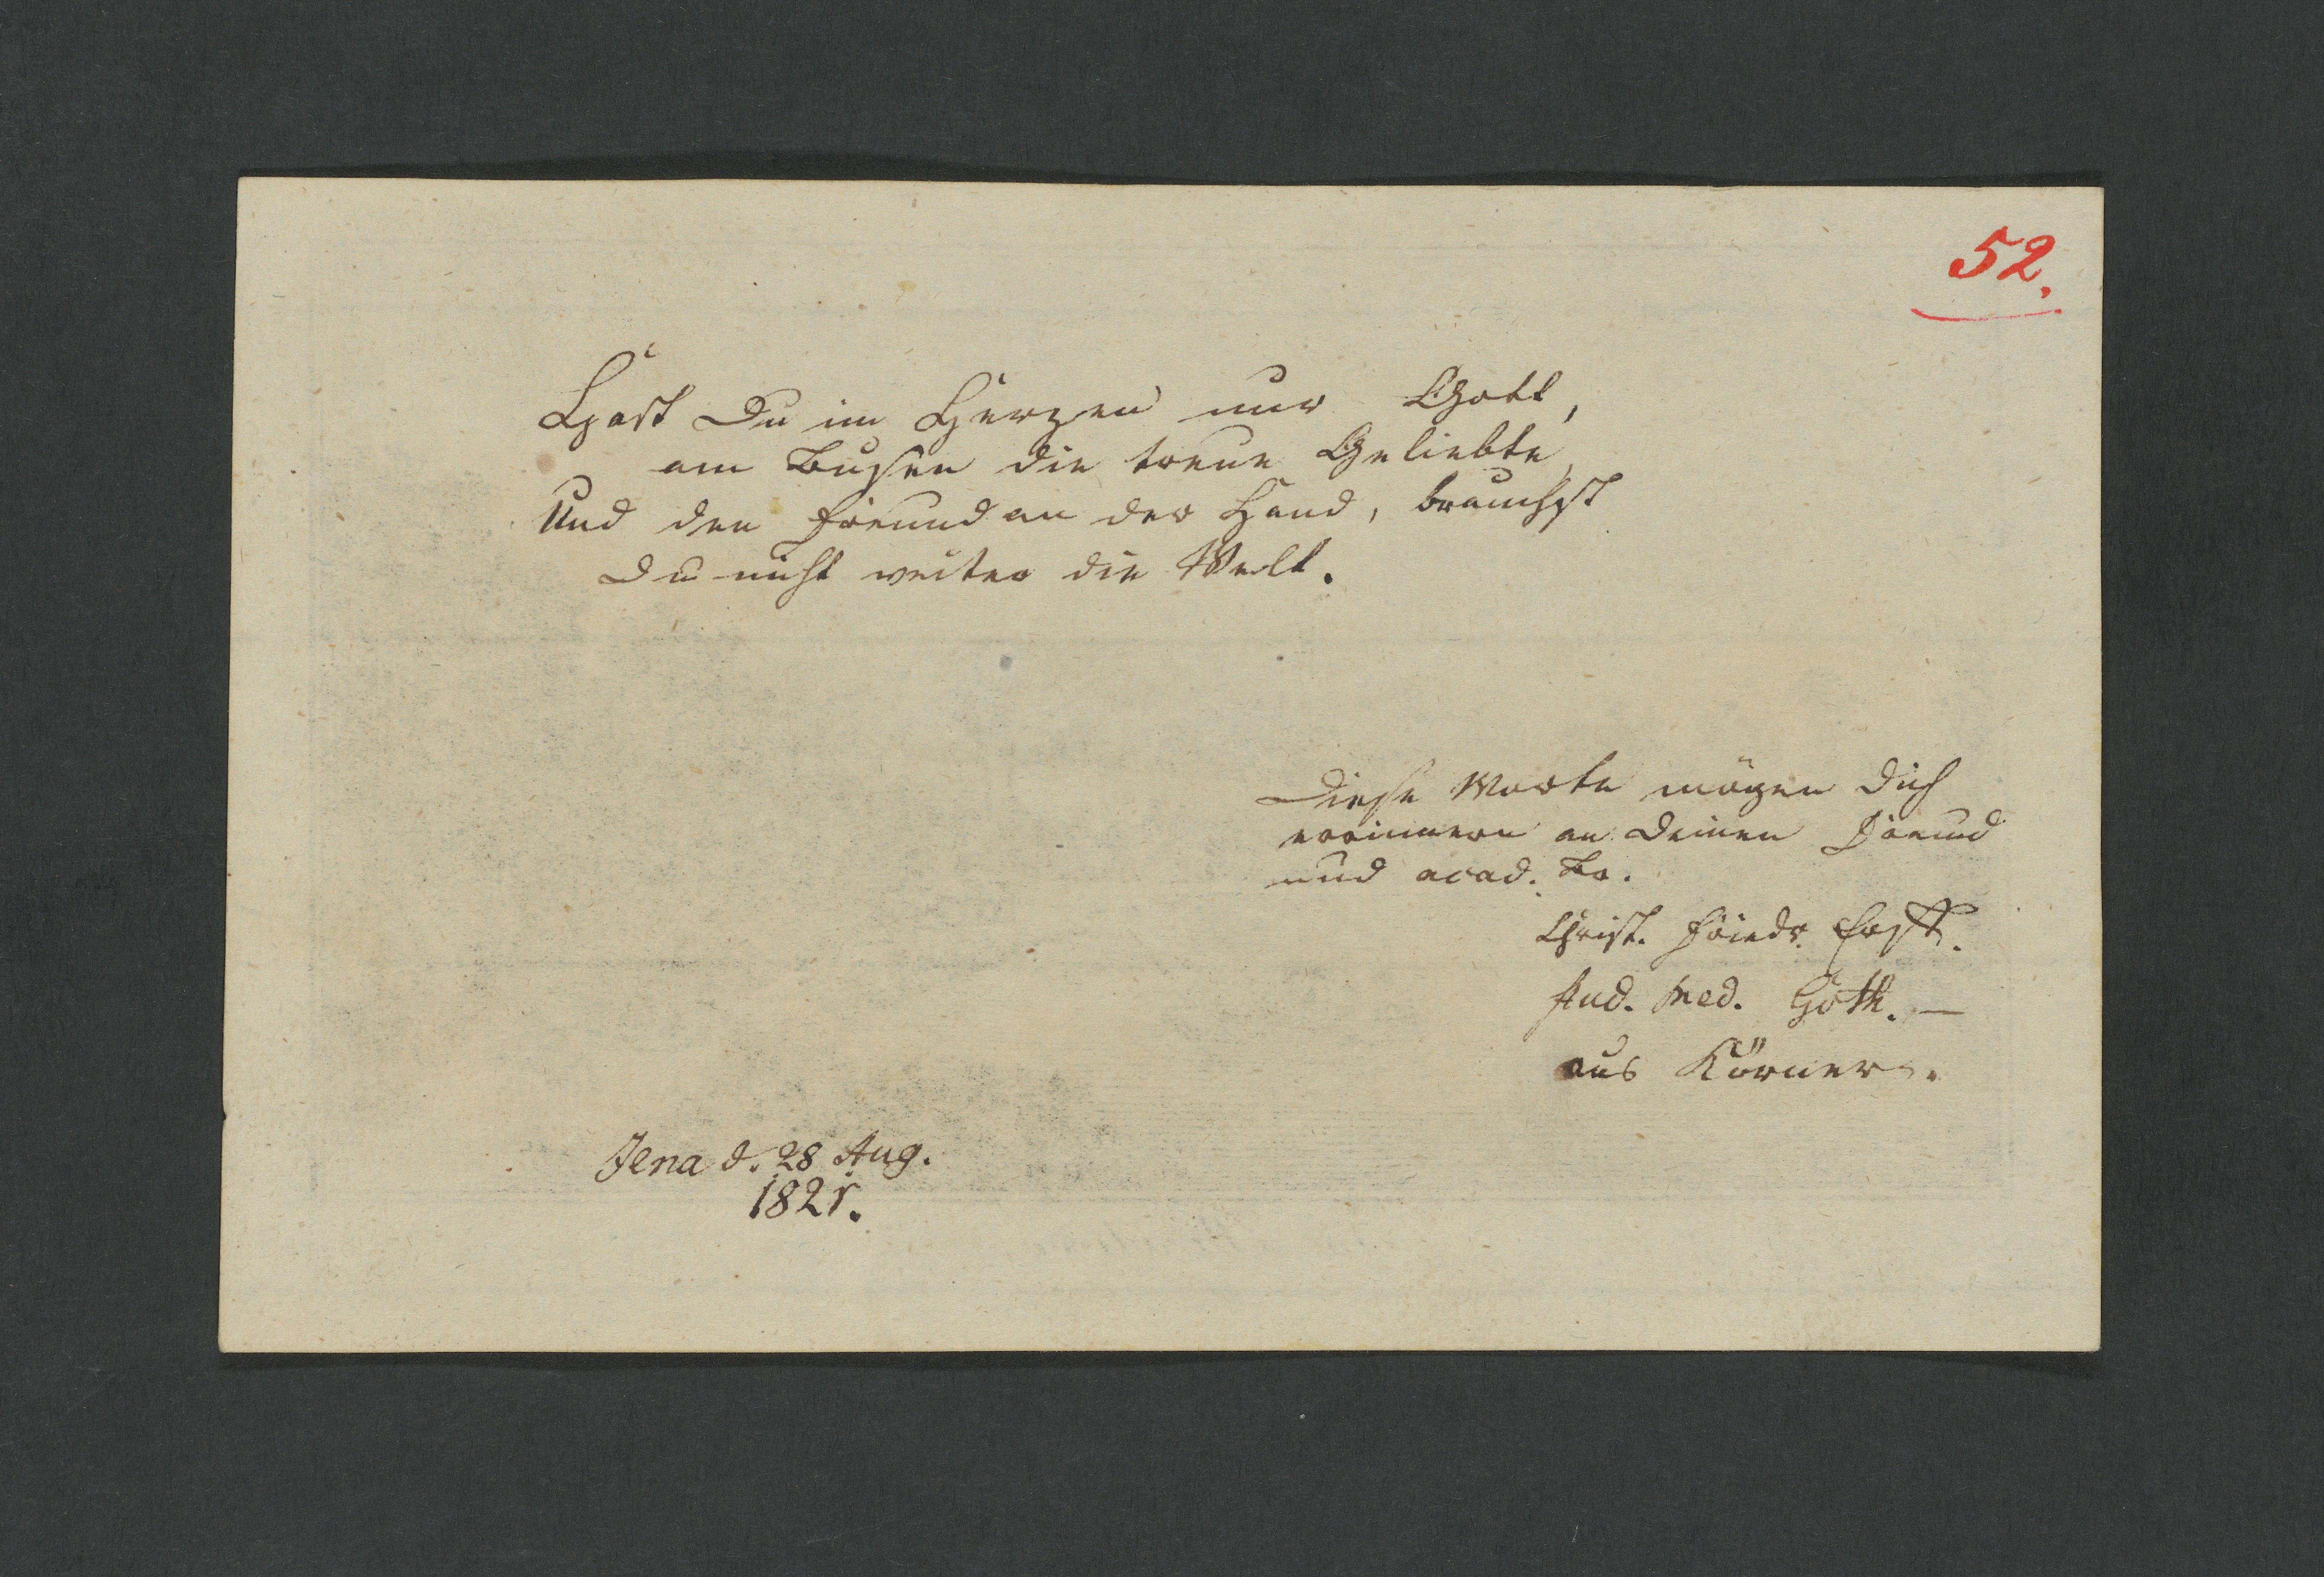 52.
Hast Du im Herzen nur Gott,
am Busen die treue Geliebte,
Und den Freund an der Hand, brauchst
Du nicht weiter die Welt.
Diese Worte mögen Dich
errinnern an Deinen Freund
und acad. Br.
Christ. Friedr.
stud. med. Goth. —
aus Körner.
Jena d. 28 Aug.
1821.